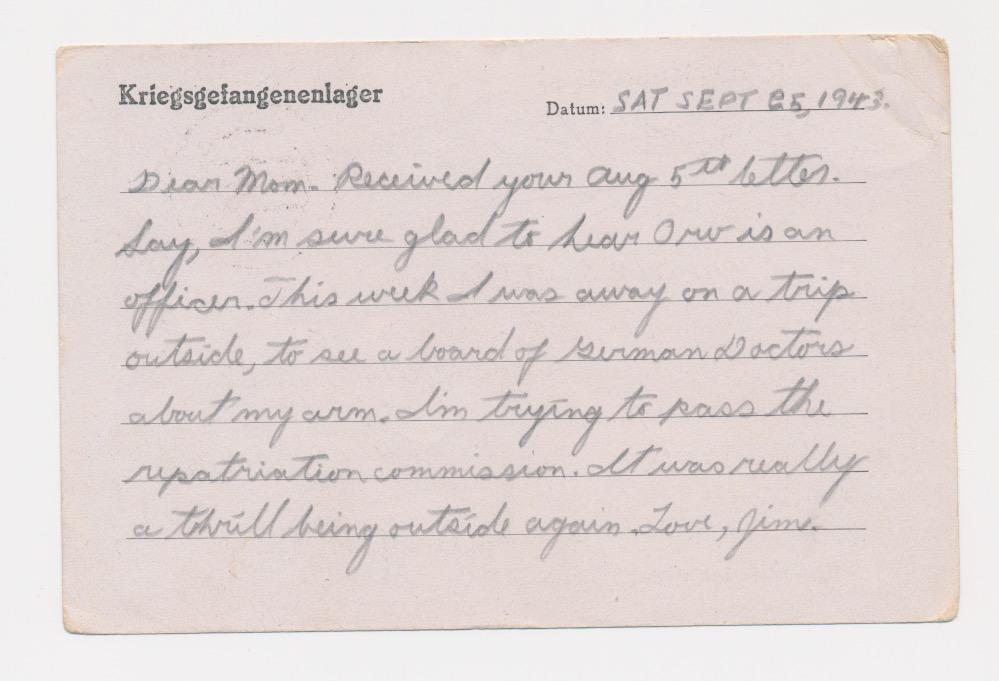 Kriegsgefangenenlager
Datum: SAT SEPT 25, 1943.
Dear Mom. Received your Aug 5th letter.
Say, I'm sure glad to hear Orv is an
officer. This week I was away on a trip
outside, to see a board of German Doctors
about my arm. I'm trying to pass the
repatriation commission. It was really
a thrill being outside again. Love, Jim.